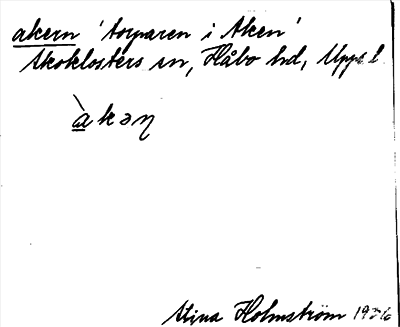 akern 'torparen i Aken'
Skoklosters sn, Håbo hd, Upps l.
àkəɳ
Stina Holmström 1936